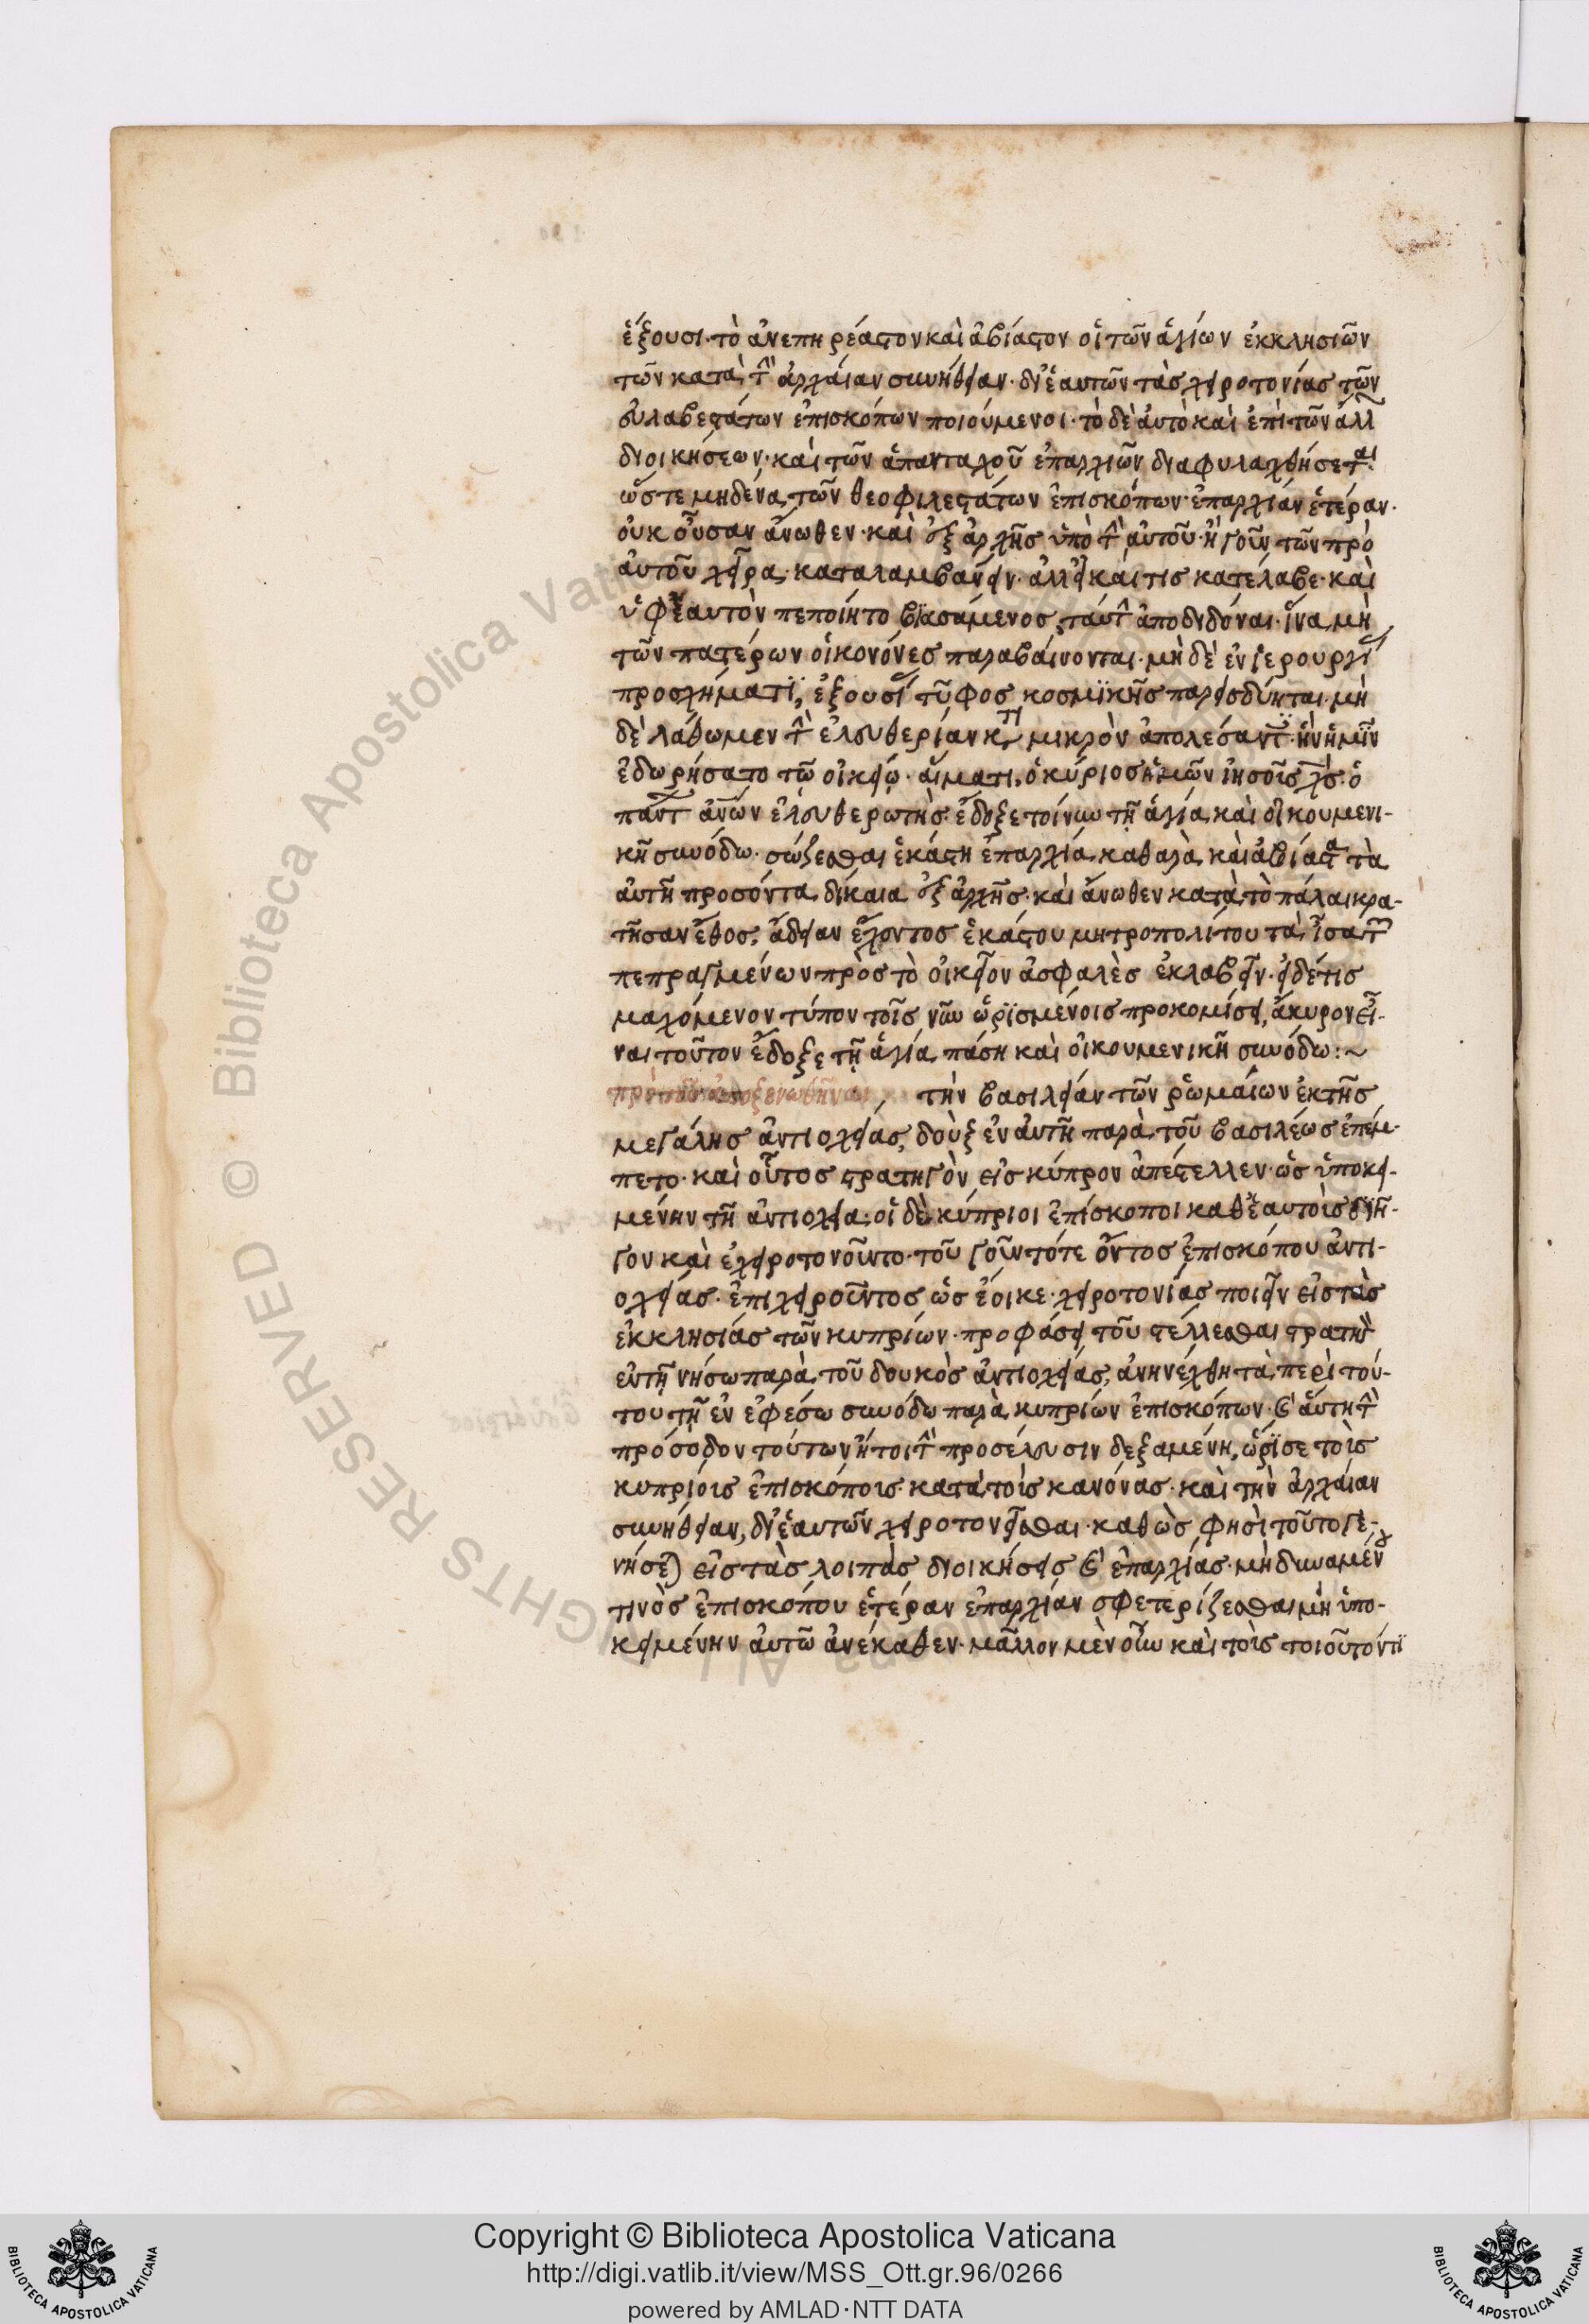 ἕξουσι· τὸ ἀνεπηρέαστον καὶ ἀβίαστον οἱ τῶν ἁγίων ἐκκλησιῶν
τῶν κατὰ τ̑ ἀρχαίαν συνήθειαν· δι' ἑαυτῶν τὰς χειροτονίας τῶν
εὐλαβεστάτων ἐπισκόπων ποιούμενοι· τὸ δὲ αὐτὸ καὶ ἐπὶ τῶν ἀλλ
διοικήσεων· καὶ τῶν ἁπανταχοῦ ἐπαρχιῶν διαφυλαχθήσεται
ὥστε μηδένα τῶν θεοφιλεστάτων ἐπισκόπων· ἐπαρχίαν ἑτέραν·
οὐκ οὖσαν ἄνωθεν· καὶ ἐξ ἀρχῆς ὑπὸ τ̑ αὐτοῦ· ἢ γοῦν τῶν πρὸ
αὐτοῦ χεῖρα· καταλαμβάνειν· ἀλλ' εἰ καί τις κατέλαβε· καὶ
ὑφ' ἑαυτὸν πεποίητο βιασάμενος, ταύτ̑ ἀποδιδόναι· ἵνα μὴ
τῶν πατέρων οἱ κονόνες παραβαίνονται· μὴ δὲ ἐν ἱερουργί
προσχήματϊ, ἐξουσί τῦφος κοσμϊκῆς παρεισδύηται· μὴ
δὲ λάθωμεν τ̑ ἐλευθερίαν κτ μικρὸν ἀπολέσαντ· ἣν ἡμῖν
ἐδωρήσατο τῶ οἰκείω· αἵματι, ὁ κύριος ἡμῶν ἰησοῦς χς· ὁ
πάντ ἀνων ἐλευθερωτής· ἔδοξε τοίνυν τῆ ἁγία καὶ οἰκουμενι-
κῆ συνόδω· σώζεσθαι ἑκάστη ἐπαρχία καθαρὰ καὶ ἀβίαστα τὰ
αὐτῆ προσόντα δίκαια ἐξ ἀρχῆς· καὶ ἄνωθεν κατὰ τὸ πάλαι κρα-
τῆσαν ἔθος, ἄδειαν ἔχοντος ἑκάστου μητροπολίτου τὰ ἶσα τ̑
πεπραγμένων πρὸς τὸ οἰκεῖον ἀσφαλὲς ἐκλαβεῖν· εἰ δέ τις
μαχόμενον τύπον τοῖς νῦν ὡρϊσμένοις προκομίσει, ἄκυρον εἶ-
ναι τοῦτον ἔδοξε τῆ ἁγία πάση καὶ οἰκουμενικῆ συνόδω:~
ἀποξενωθῆναι, τὴν βασιλείαν τῶν ῥωμαίων ἐκ τῆς
μεγάλης ἀντιοχείας, δοὺξ ἐν αὐτῆ παρὰ τοῦ βασιλέως ἐπέμ-
πετο· καὶ οὗτος στρατηγὸν εἰς κύπρον ἀπέστελλεν· ὡς ὑποκει-
μένην τῆ ἀντιοχεία· οἱ δὲ κύπριοι ἐπίσκοποι καθ' ἑαυτοὺς διῆ-
γον καὶ ἐχειροτονοῦντο· τοῦ γοῦν τότε ὄντος ἐπισκόπου ἀντι-
οχείας· ἐπιχειροῦντος ὡς ἔοικε· χειροτονίας ποιεῖν εἰς τὰς
ἐκκλησίας τῶν κυπρίων· προφάσει τοῦ στέλλεσθαι στρατηγ
ἐν τῆ νήσω παρὰ τοῦ δουκὸς ἀντιοχείας, ἀνηνέχθη τὰ περὶ τού-
του τῆ ἐν ἐφέσω συνόδω παρὰ κυπρίων ἐπισκόπων· ϗ αὕτη τ̑
πρόσοδον τούτων ἤτοι τ̑ προσέλευσιν δεξαμένη, ὥρϊσε τοὺς
κυπρίοις ἐπισκόποις· κατὰ τοὺς κανόνας· καὶ τὴν ἀρχαίαν
συνήθειαν, δι' ἑαυτῶν χειροτονεῖσθαι· καθὼς φησὶ τοῦτο γε-
νήσε) εἰς τὰς λοιπὰς διοικήσεις ϗ ἐπαρχίας· μὴ δυναμένου
τινὸς ἐπισκόπου ἑτέραν ἐπαρχίαν σφετερίζεσθαι μὴ ὑπο-
κειμένην αὐτῶ ἀνέκαθεν· μᾶλλον μὲν οὖν καὶ τοὺς τοιοῦτόν τϊ
Copyright © Biblioteca Apostolica Vaticana
http://digi.vatlib.it/view/MSS_Ott.gr.96/0266
powered by AMLAD·NTT DATA